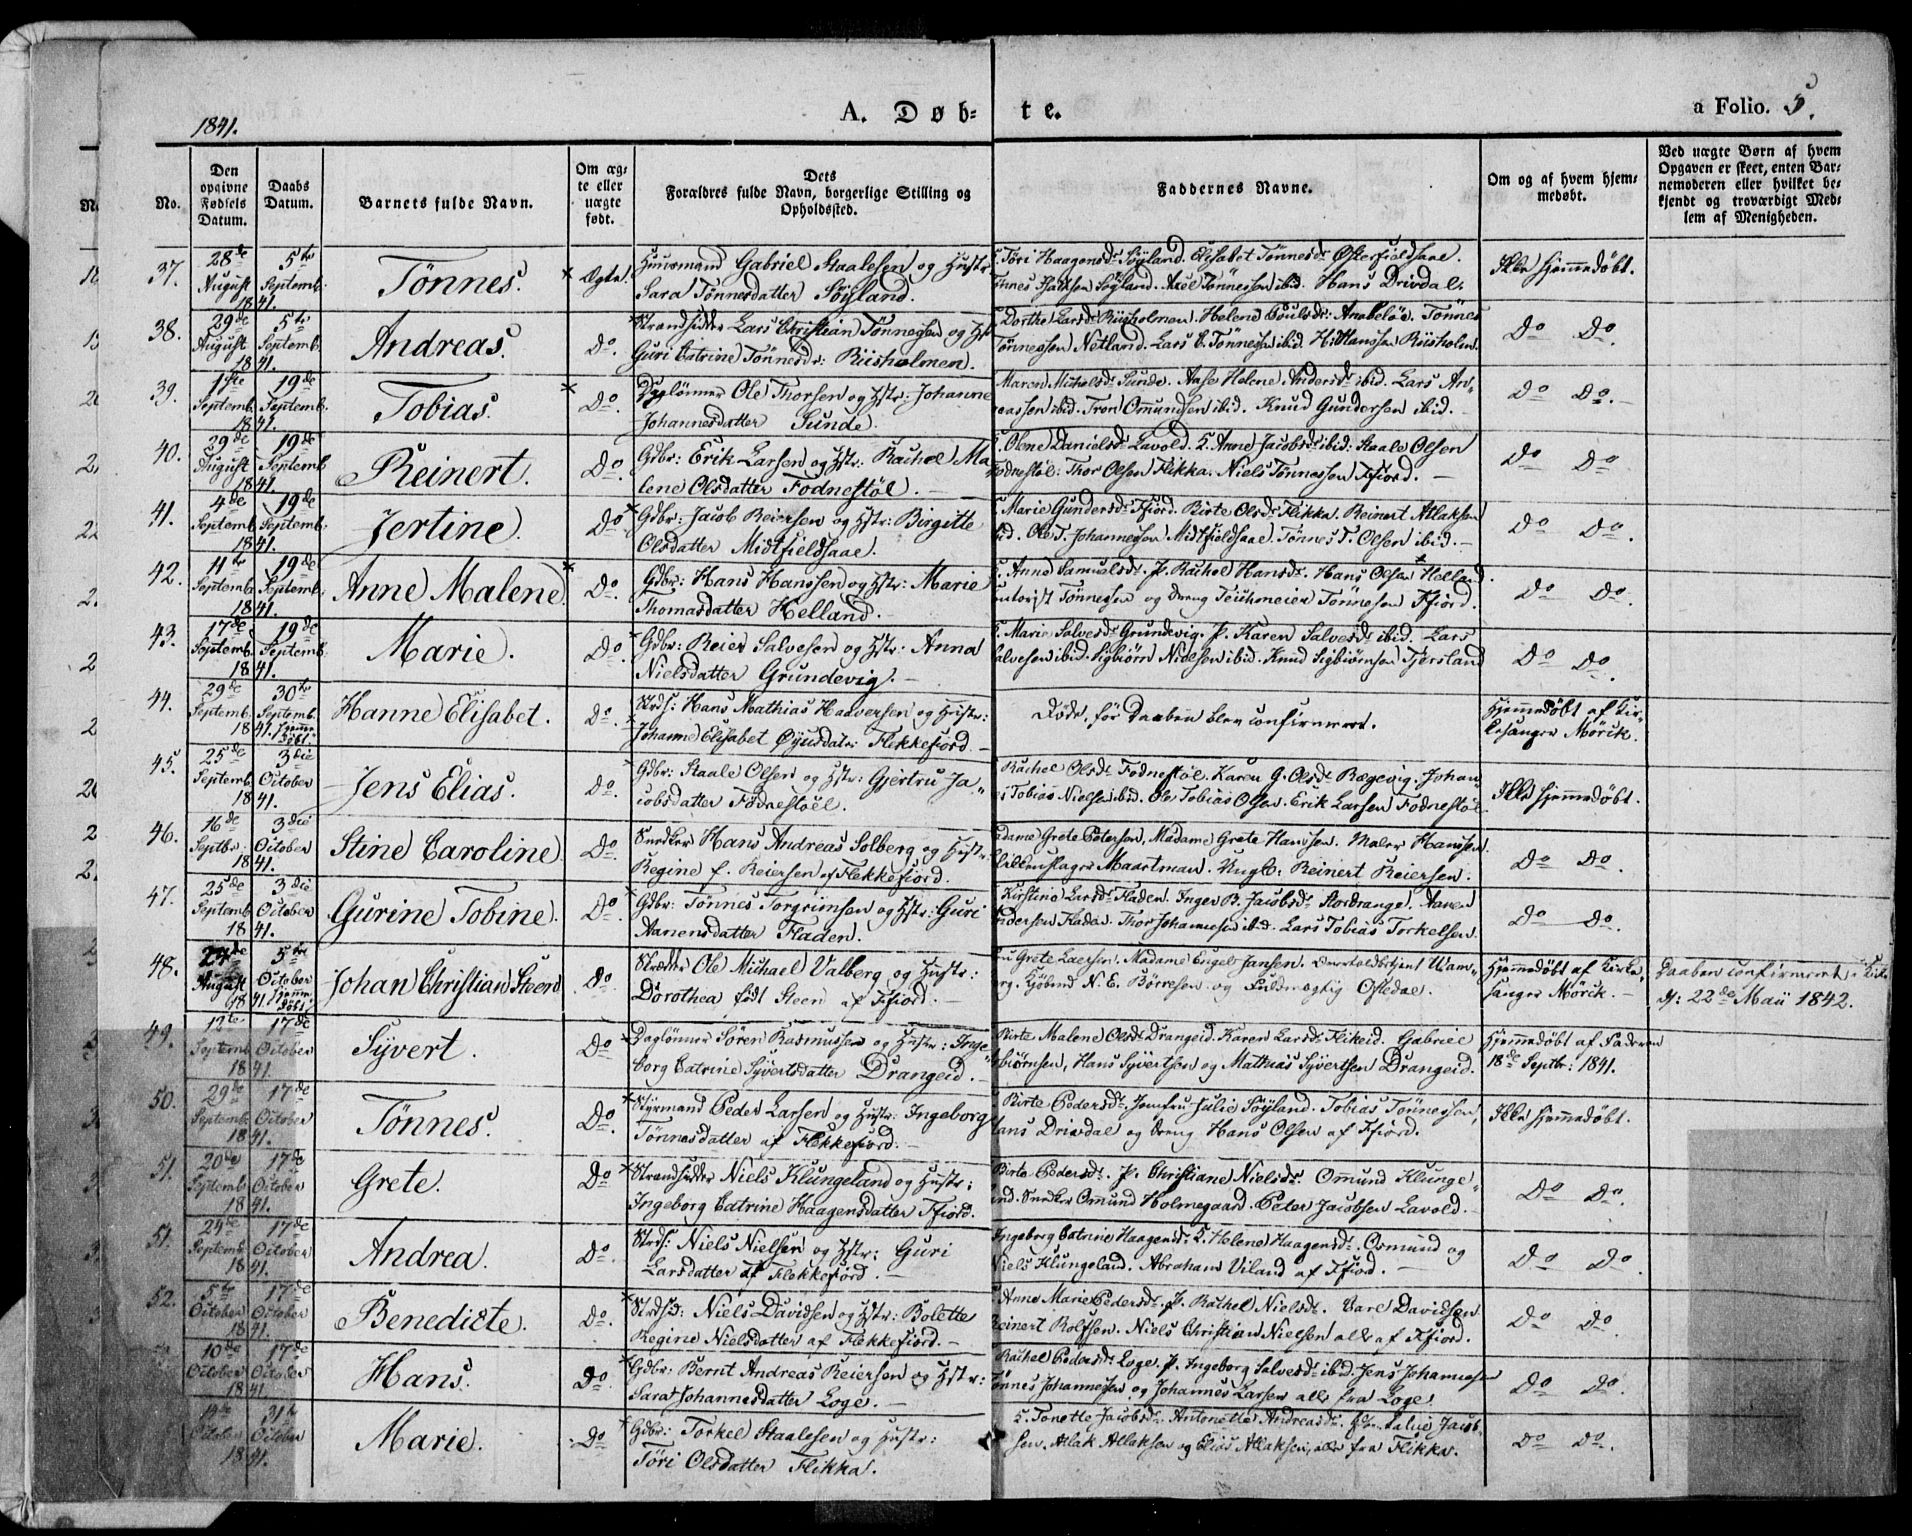 1841.
A. Døb-te.
a Folio. 5.
No.
Den opgivne Fødsels Datum.
Daabs Datum.
Barnets fulde Navn.
Om ægte eller uægte født.
Dets Forældres fulde Navn, borgerlige Stilling og Opholdssted.
Faddernes Navne.
Om og af hvem hjemmedøbt.
Ved uægte Børn af hvem Opgaven er skeet, enten Barnemoderen eller hvilket bekjendt og troværdigt Medlem af Menigheden.
37. 28de August 1841. 5te Septemb. Tønnes. Ægte. Huusmand Gabriel Staalesen og Hustr:
Sara Tønnesdatter Søyland.
Tøri Haagensdr Søyland. Elisabet Tønnesdr Østerfieldsaae.
Søyland. Axel Tønnessen ibid. Hans Drivdal.
Ikke hjemmedøbt.
38. 29de August 1841. 5te Septemb. Andreas. Do. Strandsidder Lars Christian Tønnessen og Hstr
Guri Catrine Tønnesdr: Riisholmen.
Dorthe Larsdr Riisholmen. Helene Poulsdr: Anabeløe. Tønnes
Tønnessen Netland. Lars C. Tønnessen ibid. H: Hanssen Riisholm.
Do Do.
39. 1ste Septemb. 1841. 19de Septemb. Tobias. Do. Daglønner Ole Thorsen og Hstr: Johanne
Johannesdatter Sunde.
Maren Michelsdr Sunde. Aase Helene Andersdr ibid. Lars An-
reassen ibid. Tron Omundsen ibid. Knud Gundersen ibid.
Do Do.
40. 29de August 1841. 19de Septemb Reinert. Do. Gdbr: Erik Larsen og Hstr: Rachel Ma-
lene Olsdatter Fodnestøl.
Olene Danielsdr Lavold. Anne Jacobsdr ibid: Staale Olsen
Fodnestøl: Thor Olsen Flikka. Niels Tønnessen Ffiord.
Do Do.
41. 4de Septemb. 1841. 19de Septemb. Jertine. Do Gdbr: Jacob Reiersen og Hstr: Birgitte
Olsdatter Midtfieldsaae.
Marie Gundersdr Ffiord. Birte Olsdr Flikka. Reinert Atlaksen
ibid. Ole T. Johannessen Midtfieldsaae. Tønnes T. Olsen ibid.
Do Do.
42. 11te Septemb. 1841. 19de Septemb. Anne Malene. Do. Gdbr: Hans Hanssen og Hstr: Marie
Thomasdatter Helland.
Anne Samuelsdr. P. Rachel Hansdr. Hans Olsen Helland.
Tønnessen og dreng Teichmeier Tønnesen Ffiord.
Do Do.
43. 17de Septemb. 1841. 19de Septemb. Marie. Do. Gdbr: Reier Salvesen og Hstr: Anna
Nielsdatter Grundevig.
Marie Salvesdr Grundevig. P. Karen Salvesdr ibid. Lars
Salvesen ibid. Sigbiørn Nielsen ibid. Knud Sigbiørnsen Tjersland
Do Do.
44. 29de Septemb. 1841. 30te Septemb. hjemmedøbt. Hanne Elisabet. Do. Strds: Hans Mathias Haaversen og Hustr:
Johanne Elisabet Øyusdatr Flekkefiord.
Døde, før Daaben blev confirmeret.
Hjemmedøbt af Kir-
kesanger Mørik.
45. 25de Septemb. 1841. 3die October Jens Elias. Do. Gdbr: Staale Olsen og Hstr: Gjertru Ja-
cobsdatter Fodnestøel.
Rachel Olsdr Fodnestøl. Karen G. Olsdr Rægevig. Johan-
Tobias Nielsen ibid. Ole Tobias Olsen. Erik Larsen Fodnestøl
Ikke hjemmedøbt.
46. 16de Septbr: 1841. 3die October Stine Caroline. Do. Snedker Hans Andreas Solberg og Hustr:
Regine f. Reiersen af Flekkefiord.
Madame Grete Petersen, Madame Grete Hanssen. Maler Hanssen.
Maartman. Ungk: Reinert Reiersen.
Do Do.
47. 25de Septemb. 1841. 3die October Gurine Tobine. Do. Gdbr: Tønnes Torgrimsen og Hstr: Guri
Aanensdatter Fladen.
Kirstine Larsdr Fladen. Inger B. Jacobsdr Stordrange. Aanen
Andersen Fladen. Thor Johannesen ibid. Lars Tobias Torkelsen.
Do Do.
48. 24de August 1841. 5te October hjemmedøbt Johan Christian Steen. Do. Ole Michael Valberg og Hustr:
Dorothea født Steen af Ffiord.
Grete Laersen. Madame Engel Jansen.
Kjøbmd N. E. Børresen og Fuldmægtig Ofstedal.
Hjemmedøbt af Kirke-
sanger Mørik.
Daaben confirmeret i Kirken
d: 22de Maii 1842.
49. 12te Septemb 1841. 17de October Syvert. Do Daglønner Søren Rasmussen og Hustr: Inge-
borg Catrine Syvertsdatter Drangeid.
Birte Malene Olsdr Drangeid. Karen Larsdr Flikeid. Gabriel
Hans Syvertsen og Mathias Syvertsen Drangeid.
Hjemmedøbt af Faderen
18de Septbr: 1841.
50. 29de Septemb 1841. 17de October Tønnes. Do. Styrmand Peder Larsen og Hustr: Ingeborg
Tønnesdatter af Flekkefiord.
Birte Pedersdr. Jomfru Julie Søyland. Tobias Tønnessen,
Hans Drivdal og dreng Hans Olsen af Ffiord.
Ikke hjemmedøbt.
51. 20de Septemb 1841. 17de October Grete. Do Strandsidder Niels Klungeland og Hustr:
Ingeborg Catrine Haagensdatter Ffiord.
Birte Pedersdr. P. Christiane Nielsdr. Omund Klunge-
land. Snedker Omund Holmegaard. Peter Jacobsen Lavold.
Do Do.
51. 24de Septemb 1841. 17de October Andrea. Do. Strds: Niels Nielsen og Hstr: Guri
Larsdatter af Flekkefiord.
Ingeborg Catrine Haagensdr. Helene Haagensdr. Osmund og
Niels Klungeland. Abraham Uiland af Ffiord.
Do Do.
52. 5te October 1841. 17de October Benedicte. Do. Strds: Niels Davidsen og Hstr: Bolette
Regine Nielsdatter af Flekkefiord.
Anne Marie Pedersdr. P. Rachel Nielsdr. Carl Davidsen
Reinert Rolfsen. Niels Christian Nielsen alle af Ffiord.
Do Do.
10de October 1841. 17de October Hans. Do. Gdbr: Bernt Andreas Reiersen og Hstr:
Sara Johannesdatter Loge.
Rachel Pedersdr Loge. P. Ingeborg Salvesdr ibid. Jens Johannesen
Tønnes Johannessen og Johannes Larsen alle fra Loge.
Do Do.
14de October 1841. 31te October Marie. Do Gdbr: Torkel Staalesen og Hustr:
Tøri Olsdatter Flikka.
Tonette Jacobsdr. Antonette Andreasdr. Jacob-
sen. Atlak Atlaksen og Elias Atlaksen, alle fra Flikka.
Do Do.